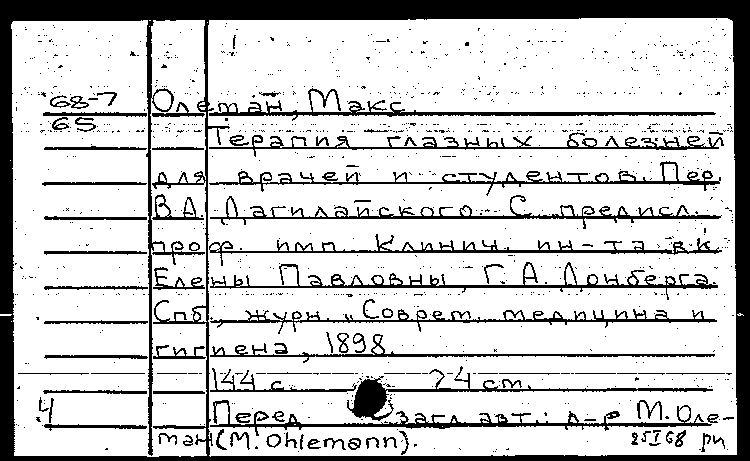 68-7 Олеман, Макс.
65
Терапия глазных болезней
для врачей и студентов. Пер.
В.А. Дагилайского. С предисл.
проф. имп. Клинич. ин-та в.к.
Елены Павловны, Г.А. Донберга.
Спб., журн. „Соврем. медицина и
гигиена, 1898.
144 с. 24 см.
Ч Перед загл. авт.: д-р М. Оле-
ман (M. Ohlemann).
25 I 68